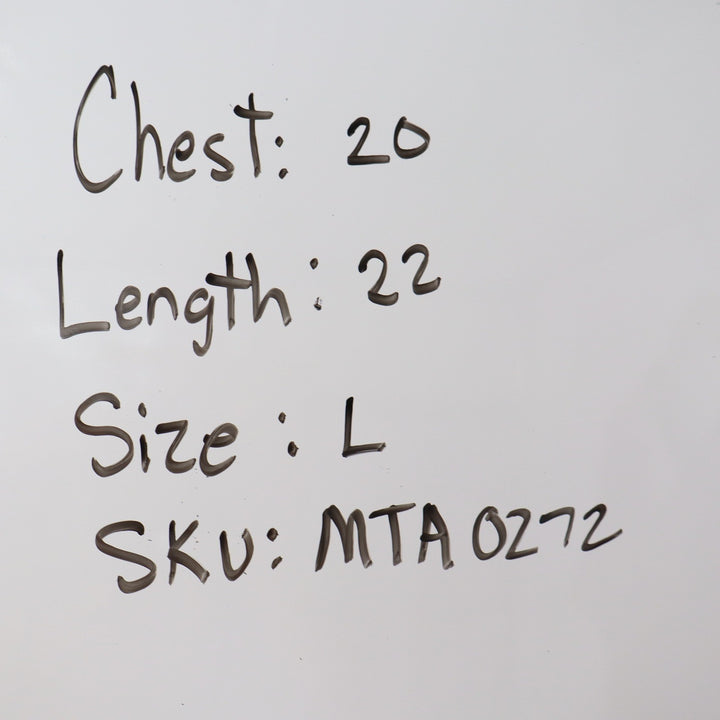 Chest: 20
Length: 22
Size: L
SKU: MTA 0272